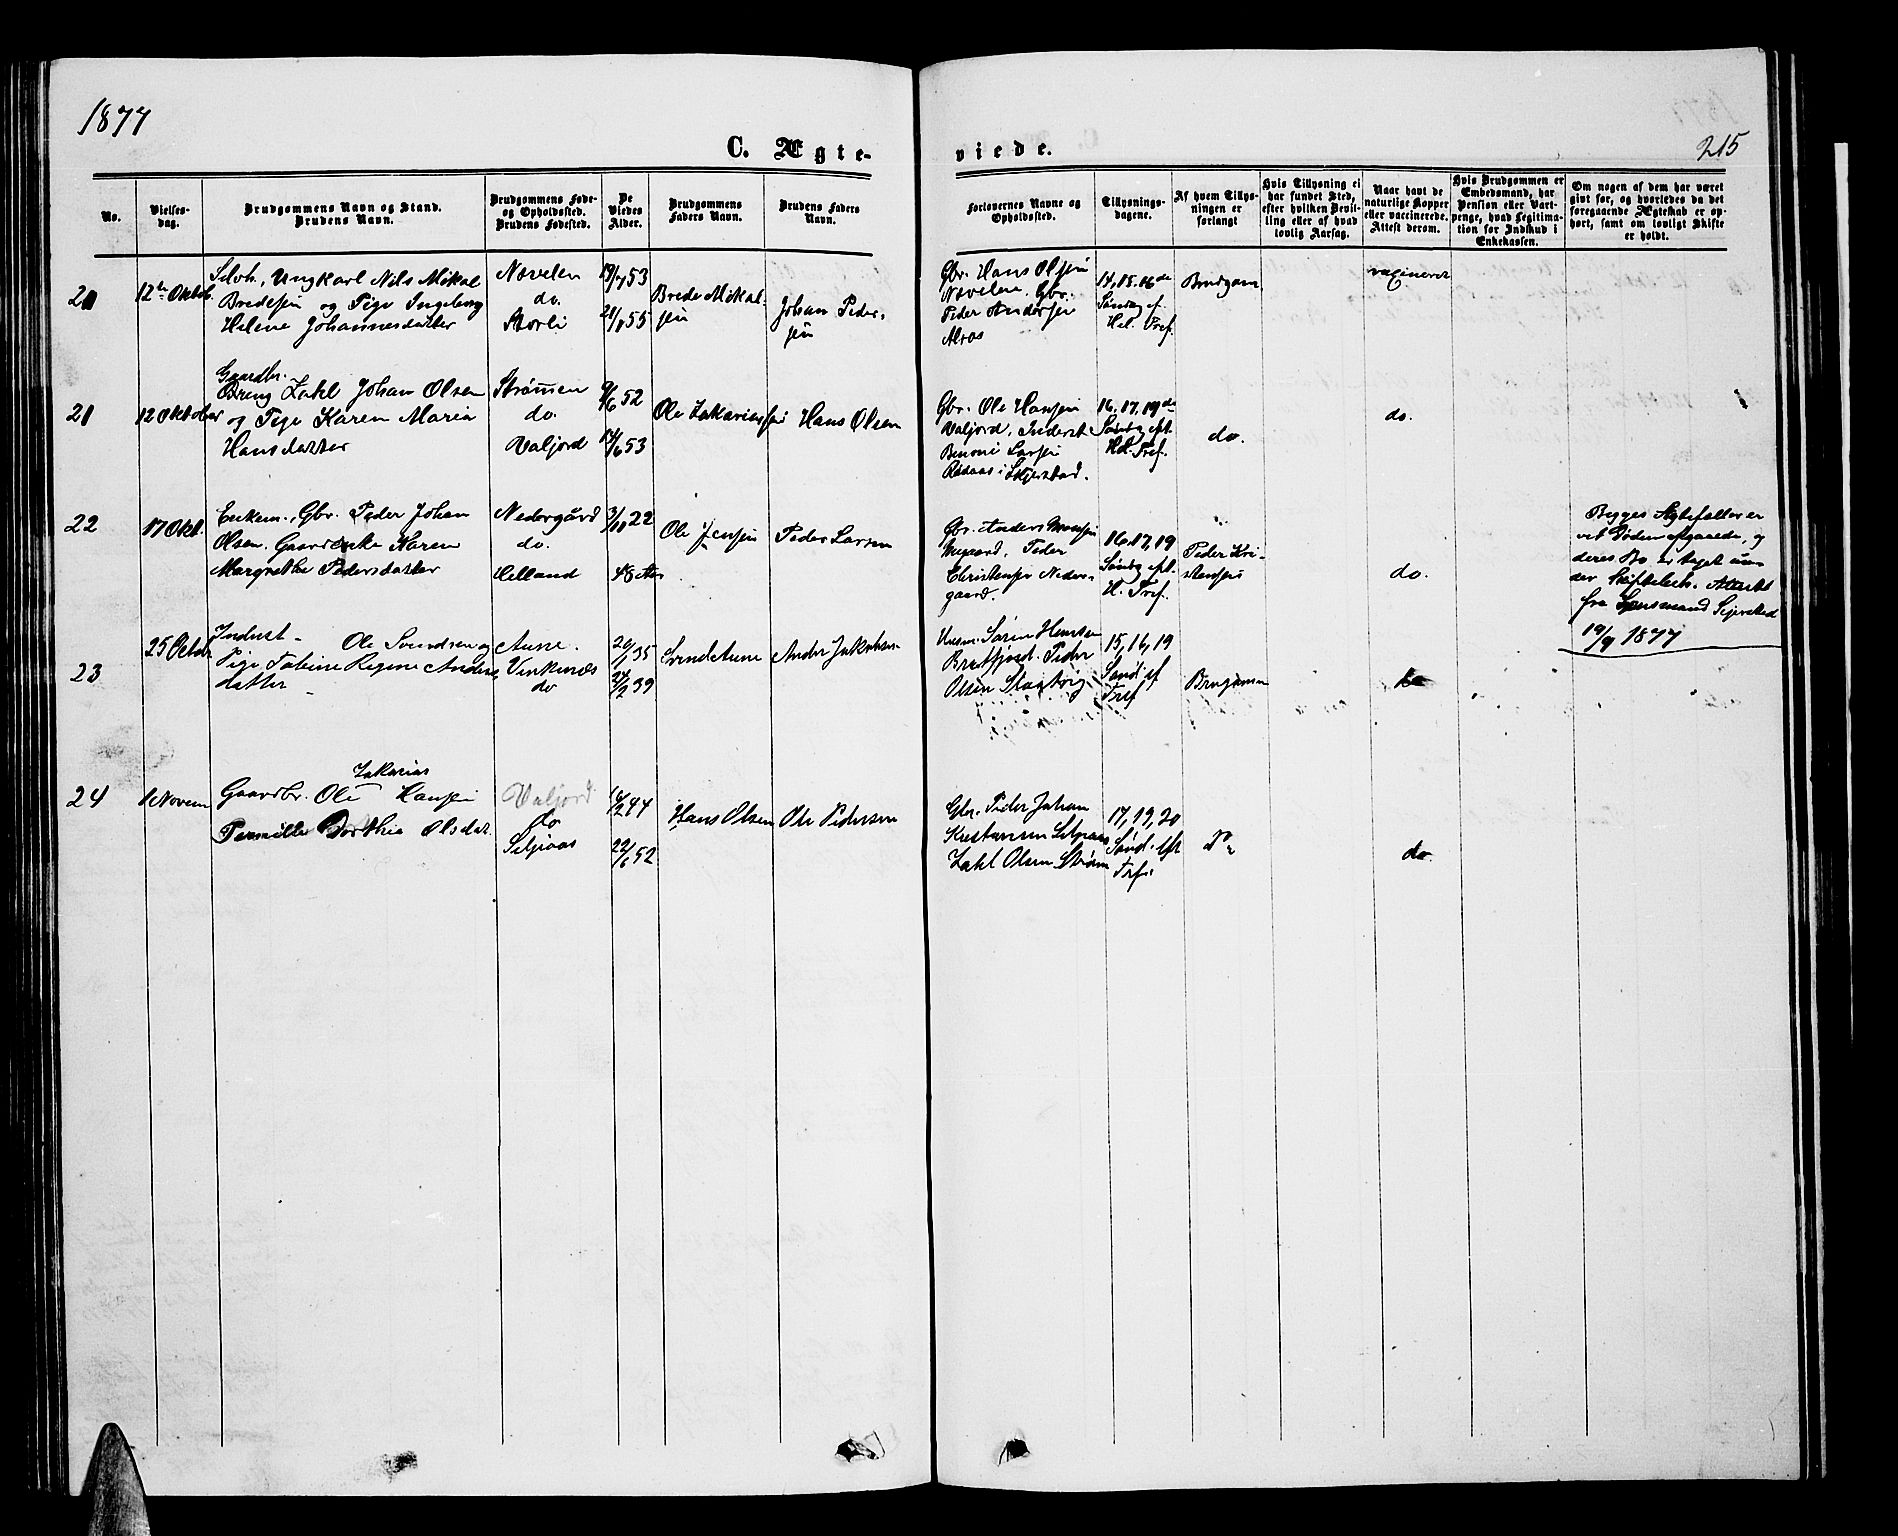 1877
C. Ægte-
viede.
215
No.
Vielses-
dag.
Brudgommens Navn og Stand.
Brudens Navn.
Brudgommens Føde-
og Opholdssted.
Brudens Fødested.
De
Viedes
Alder.
Brudgommens
Faders Navn.
Brudens Faders
Navn.
Forlovernes Navne og
Opholdssted.
Tillysnings-
dagene.
Af hvem Tillys-
ningen er
forlangt
Hvis Tillysning ei
har fundet Sted,
efter hvilken Bevil-
ling eller af hvad
lovlig Aarsag.
Naar havt de
naturlige Kopper
eller vaccinerede.
Attest derom.
Hvis Brudgommen er
Embedsmand, har
Pension eller Vart-
penge, hvad Legitima-
tion for Indskud i
Enkekassen.
Om nogen af dem har været
givt før, og hvorledes da det
foregaaende Ægteskab er op-
hørt, samt om lovligt Skifte
er holdt.
20
12te Oktob.
Selvh. Ungkarl Nils Mikal
Bredesen og Pige Ingeborg
Helene Johannesdatter
Næveln
do.
Storli
19/7 53
21/8 55
Brede Mikal-
sen
Johan Peder-
sen
Gbr. Hans Olsen
Gbr.
Peder Andersen
Alvas
14, 15, 16de
Søndag ef.
Hel. Tref.
Brudgom
vaccineret
21
12 Oktober
Gaardbr.
Zakl Johan Olsen
og Pige Karen Maria
Hansdatter
Strømen
do.
Valjord
9/6 52
14/6 53
Ole Zakariassen
Hans Olsen
Gbr. Ole Hansen
Valjord, Inderst
Benoni Larsen
Rødaas i Skjerstad.
16, 17, 19de
Søndag eft.
Hel. Tref.
do.
do.
22
17 Okt.
Enkem., Gbr. Peder Johan
Olsen. Gaardenke Karen
Margrethe Pedersdatter
Nedergård
do.
Helland
3/10 22
48 Aar
Ole Jensen
Peder Larsen
Gbr. Anders Monsen
Peder
Christensen Neder-
gaard.
16, 17, 19
Søndag eft.
H. Tref.
Peder Kri-
stensen
do.
Begges Ægtefæller er
ved Døden afgaaede, og
deres Bo er taget un-
der Skiftebeh. Attest
fra Lensmand Sejersted
19/9 1877
23
25 Octobr
Inderst Ole Svendsen og
Pige Tobine Regine Anders-
datter
Aune.
Venkenæs
do
20/1 35
24/2 39
Svend Aune
Anders Jakobsen
Husm. Søren Hansen
Breifjord. Peder
Olsen
15, 16, 19
Sønd. ef
Tref
Brudgomen
do
24
1 Novem
Zakarias
Gaardbr. Ole Hansen
Pernille Dorthea Olsdat.
Valjord
do
Seljeaas
14/2 44
22/6 52
Hans Olsen
Ole Pedersen
Gbr. Peder Johan
Kristensen Seljeaas
Zakl Olsen Strømen
17, 19, 20
Sønd. eft
Tref.
Do
do.